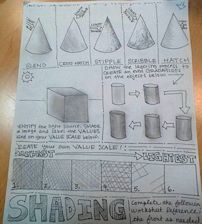 BLEND
CROSS HATCH
STIPPLE
SCRIBBLE
HATCH
SHOW the layering process to
CREATE an even GRADATION
on the objects below
IDENTIFY the light source. SHADE
& image and label the VALUES
on your VALUE SCALE below.
CREATE your own VALUE SCALE!
DARKEST
LIGHTEST
1.
2.
3.
4.
5.
6.
SHADING
Complete the following
worksheet. Reference
the front as needed